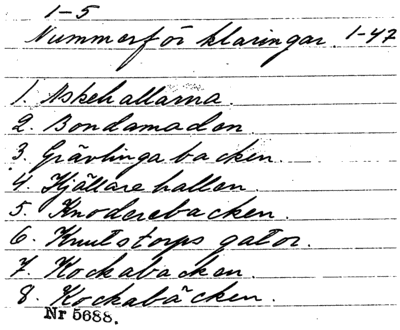 1-5
Nummerförklaringar. 1-47
1. Askehallarna.
2. Bondamaden
3. Grävlingabacken.
4. Källarehallen.
5. Knoderebacken.
6. Knutstorps gator.
7. Kockabacken.
8. Kockabäcken.
Nr 5688.